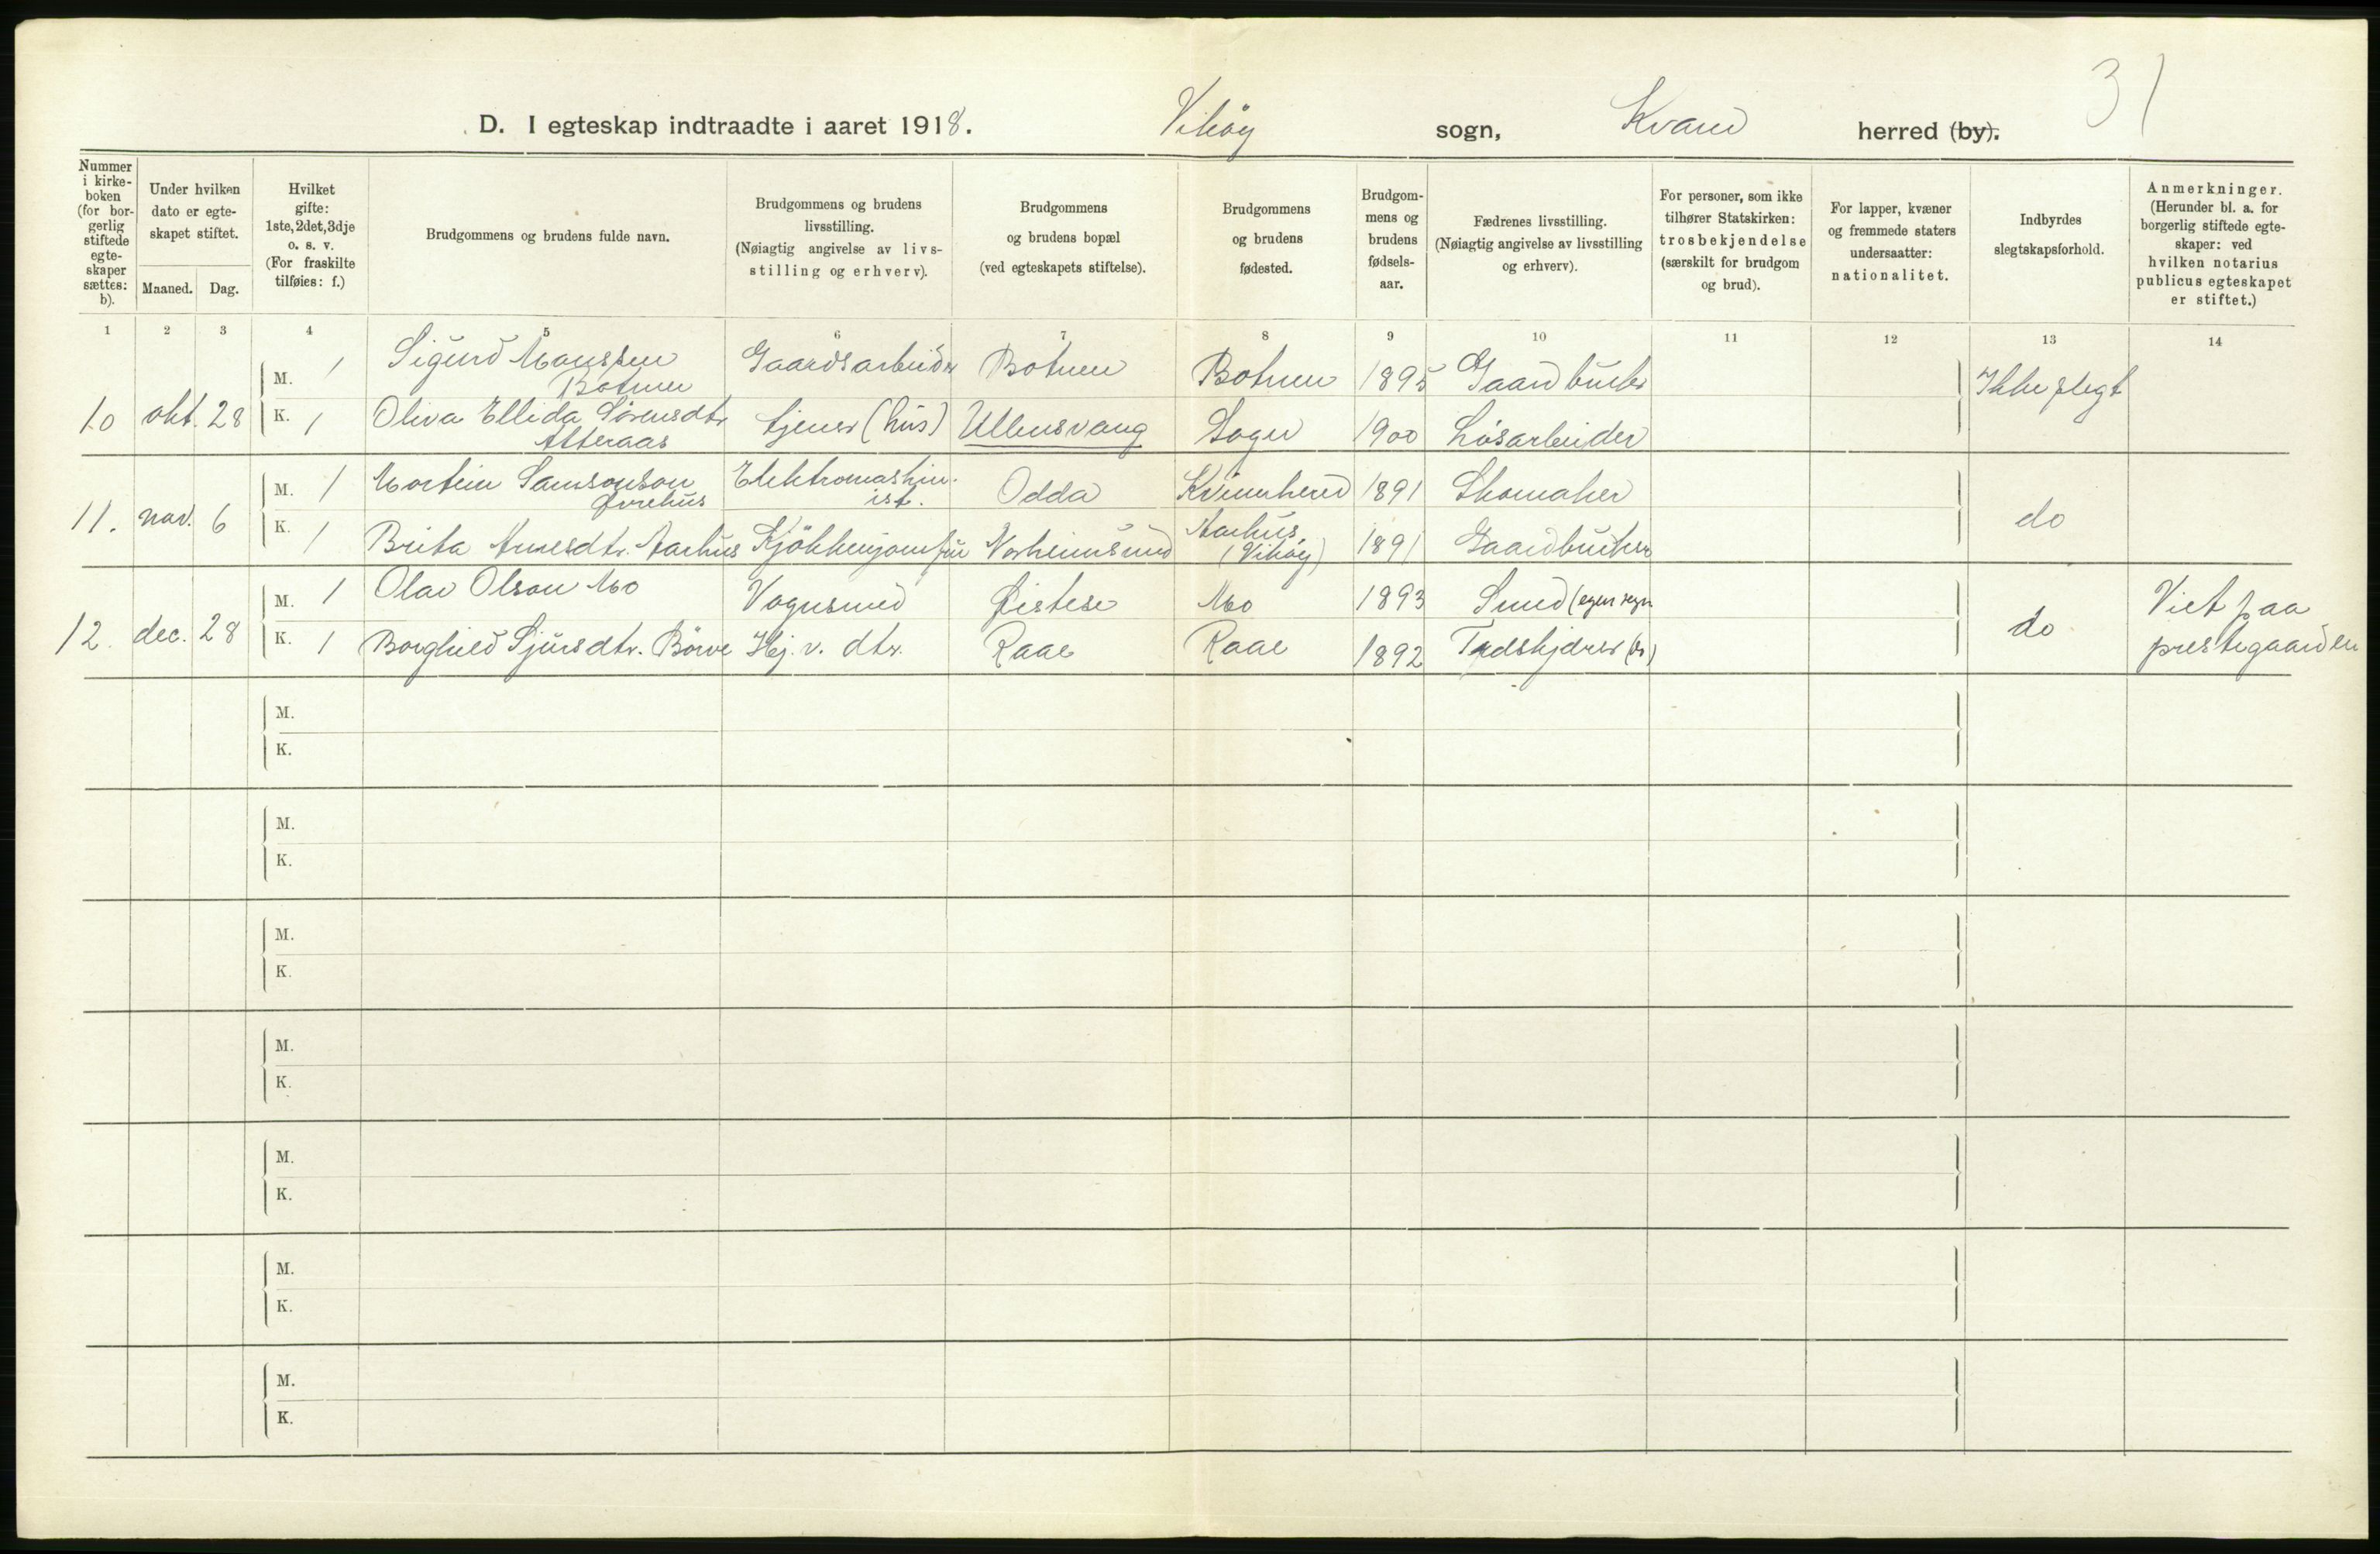 31
D. I egteskap indtraadte i aaret 1918. Viköy sogn, Kvam herred (by).
Nummer i kirke-boken (for bor-gerlig stiftede egte-skaper sættes: b).
Under hvilken dato er egte-skapet stiftet.
Maaned. Dag.
Hvilket gifte: 1ste, 2det, 3dje o. s. v. (For fraskilte tilføies: f.)
Brudgommens og brudens fulde navn.
Brudgommens og brudens livsstilling. (Nøiagtig angivelse av livs-stilling og erhverv).
Brudgommens og brudens bopæl (ved egteskapets stiftelse).
Brudgommens og brudens fødested.
Brudgom-mens og brudens fødsels-aar.
Fædrenes livsstilling. (Nøiagtig angivelse av livsstilling og erhverv).
For personer, som ikke tilhører Statskirken: trosbekjendelse (særskilt for brudgom og brud).
For lapper, kvæner og fremmede staters undersaatter: nationalitet.
Indbyrdes slegtskapsforhold.
Anmerkninger. (Herunder bl. a. for borgerlig stiftede egte-skaper: ved hvilken notarius publicus egteskapet er stiftet.)
1 2 3 4 5 6 7 8 9 10 11 12 13 14
M. 1 Sigurd Monssen Botnen Gaardsarbeider Botnen Botnen 1895 Gaardbruker Ikke slegt
10 okt. 28 K. 1 Oliva Ellida Sørensdtr Atteraas tjener (hus) Ullensvang 1900 Løsarbeider
M. 1 Mortein Samsonson Elektromaskin-ist. Odda Kvinnherred 1891 Skomaker
11. nov. 6 K. 1 Brita Arnesdtr. Aarhus Kjökkenjomfru Norheimsund Aarhus, (Viköy) 1891 Gaardbruker do
M. 1 Olav Olson Mo Vognsmed Øistese Mo 1893 Smed (egen regn Viet paa
12. dec. 28 K. 1 Borghild Sjursdtr. Börve Hj. v. dtr. Raae Raae 1892 (do) do prestegaarden
M.
K.
M.
K.
M.
K.
M.
K.
M.
K.
M.
K.
M.
K.